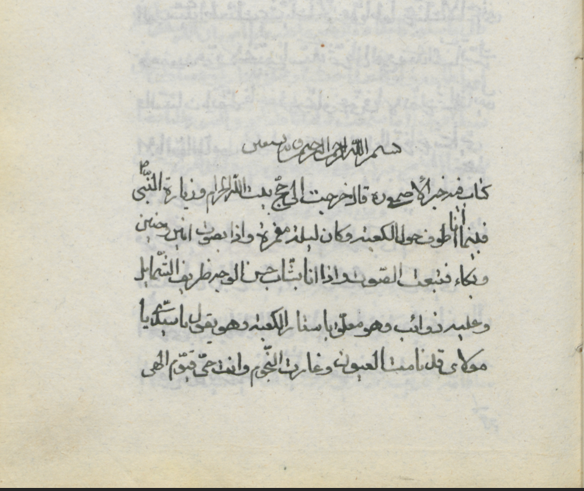 بسم الله الرحمن الرحيم وبه نستعين
كتاب فيه خبر الاصمعى قال خرجت الى حج بيت الله الحرام وزيارة النبى
فبينما انا اطوف حول الكعبة وكان ليلة مقمرة واذا بصوت انين وحنين
وبكاء فتبعت الصوت واذا انا بشاب حسن الوجه ظريف الشمايل
وعليه ذوائب وهو معلق باستار الكعبة وهو يقول يا سيدى يا
مولاى قد نامت العيون وغارت النجوم وانت حى قيوم الهى